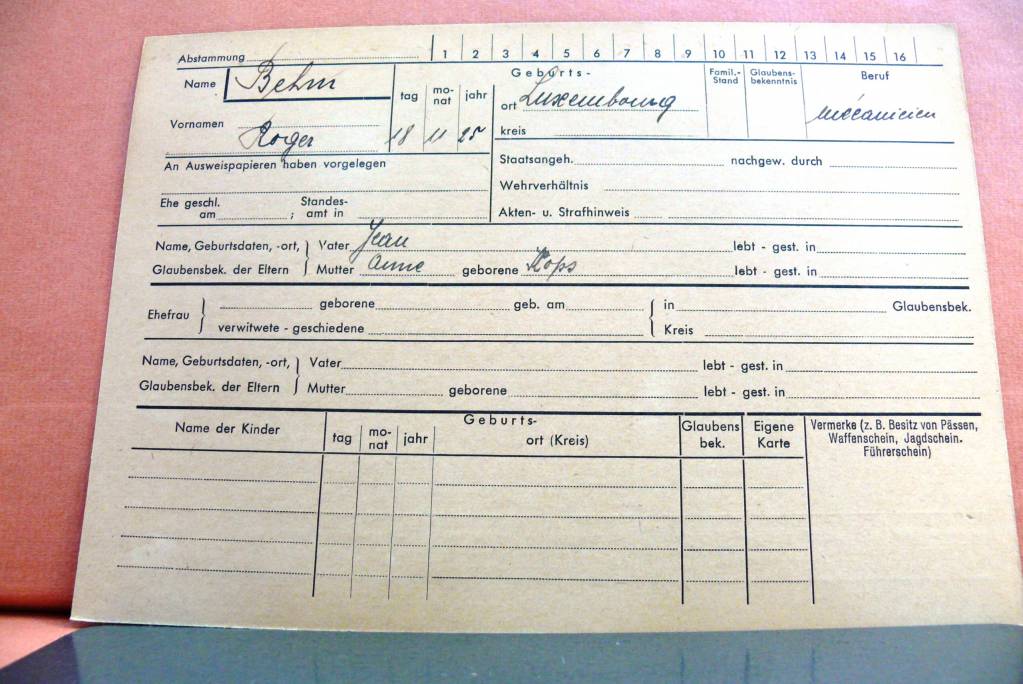 Abstammung 1 2 3 4 5 6 7 8 9 10 11 12 13 14 15 16
Name Behm tag mo-nat jahr Geburts- ort Luxembourg Famil.-Stand Glaubens-bekenntnis Beruf mécanicien
Vornamen Roger 18 11 25 kreis
An Ausweispapieren haben vorgelegen Staatsangeh. nachgew. durch
Wehrverhältnis
Ehe geschl. am ; Standes-amt in Akten- u. Strafhinweis
Name, Geburtsdaten, -ort, Vater Jean lebt - gest. in
Glaubensbek. der Eltern Mutter Anne geborene Kops lebt - gest. in
Ehefrau geborene geb. am in Glaubensbek.
verwitwete - geschiedene Kreis
Name, Geburtsdaten, -ort, Vater lebt - gest. in
Glaubensbek. der Eltern Mutter geborene lebt - gest. in
Name der Kinder tag mo-nat jahr Geburts- ort (Kreis) Glaubens bek. Eigene Karte Vermerke (z. B. Besitz von Pässen,
Waffenschein, Jagdschein.
Führerschein)